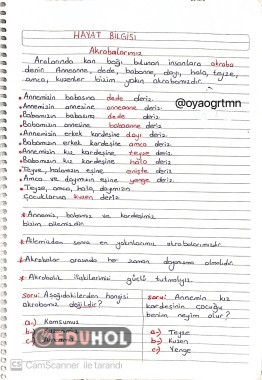 HAYAT BİLGİSİ
Akrabalarımız
Aralarında kan bağı bulunan insanlara akraba
denir. Anneanne, dede, babaanne, dayı, hala, teyze,
amca, kuzenler bizim yakın akrabamızdır.
Annemizin babasına dede deriz.
@oyaogrtmn
Annemizin annesine anneanne deriz.
Babamızın babasına dede deriz.
Babamızın annesine babaanne deriz.
Annemizin erkek kardeşine dayı deriz.
Babamızın erkek kardeşine amca deriz.
Annemizin kız kardeşine teyze deriz.
Babamızın kız kardeşine hala deriz.
Teyze, halamızın eşine enişte deriz.
Amca ve dayımızın eşine yenge deriz.
Teyze, amca, hala, dayımızın
çocuklarına kuzen deriz.
* Annemiz, babamız ve kardeşimiz
bizim ailemizdir.
* Ailemizden sonra en yakınlarımız akrabalarımızdır.
* Akrabalar arasında her zaman dayanışma olmalıdır.
* Akrabalık ilişkilerimizi güçlü tutmalıyız.
Soru: Aşağıdakilerden hangisi
akrabamız değildir?
a-) Komşumuz
b-)
c-)
Soru: Annemin kız
kardeşinin çocuğu
benim neyim olur?
a-) Teyze
b-) Kuzen
c-) Yenge
EDUHOL
CS CamScanner ile tarandı